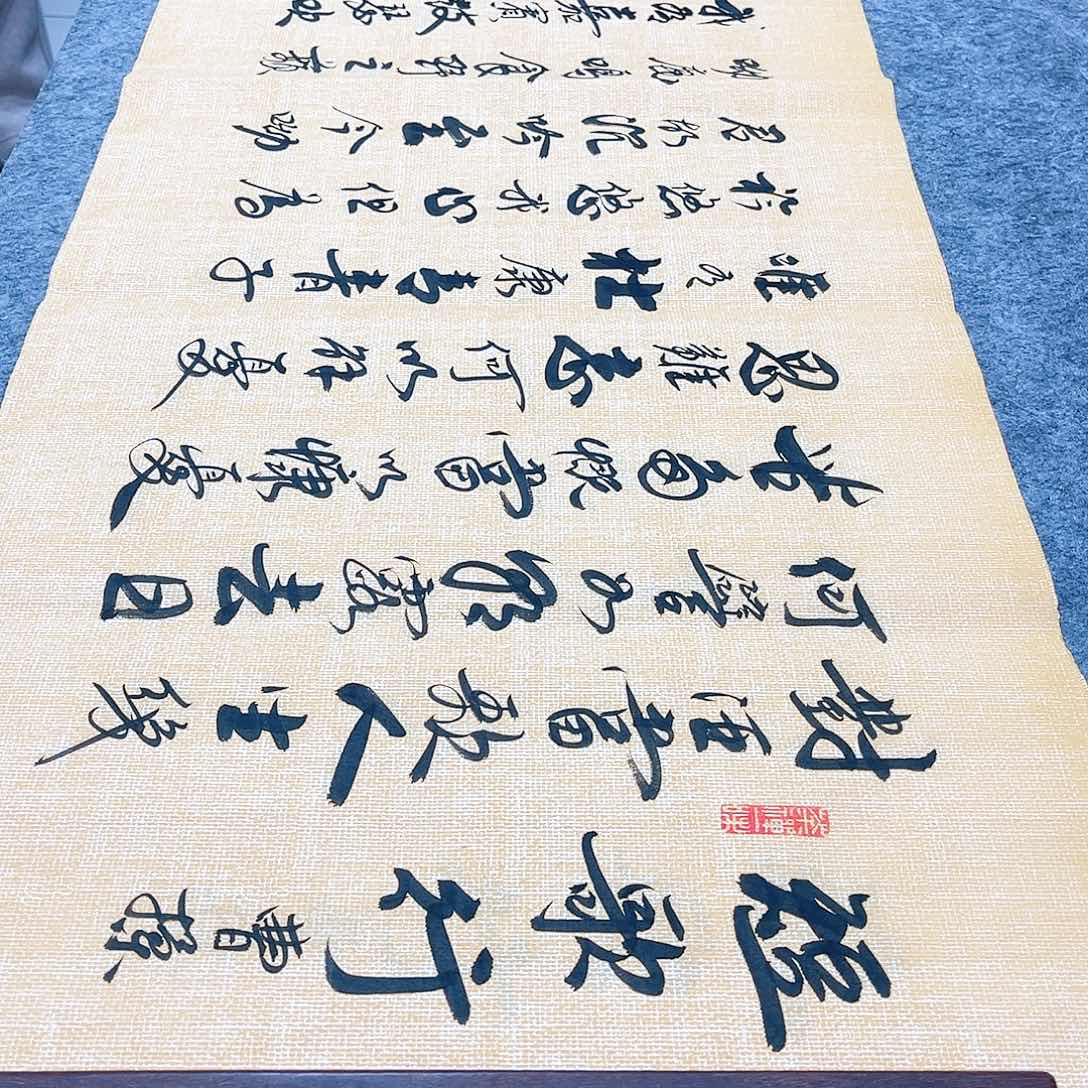 短歌行 曹操
對酒當歌人生幾
何譬如朝露去日
苦多慨當以慷憂
思難忘何以解憂
唯有杜康青青子
衿悠悠我心但為
君故沉吟至今呦
呦鹿鳴食野之苹
我有嘉賓鼓瑟吹